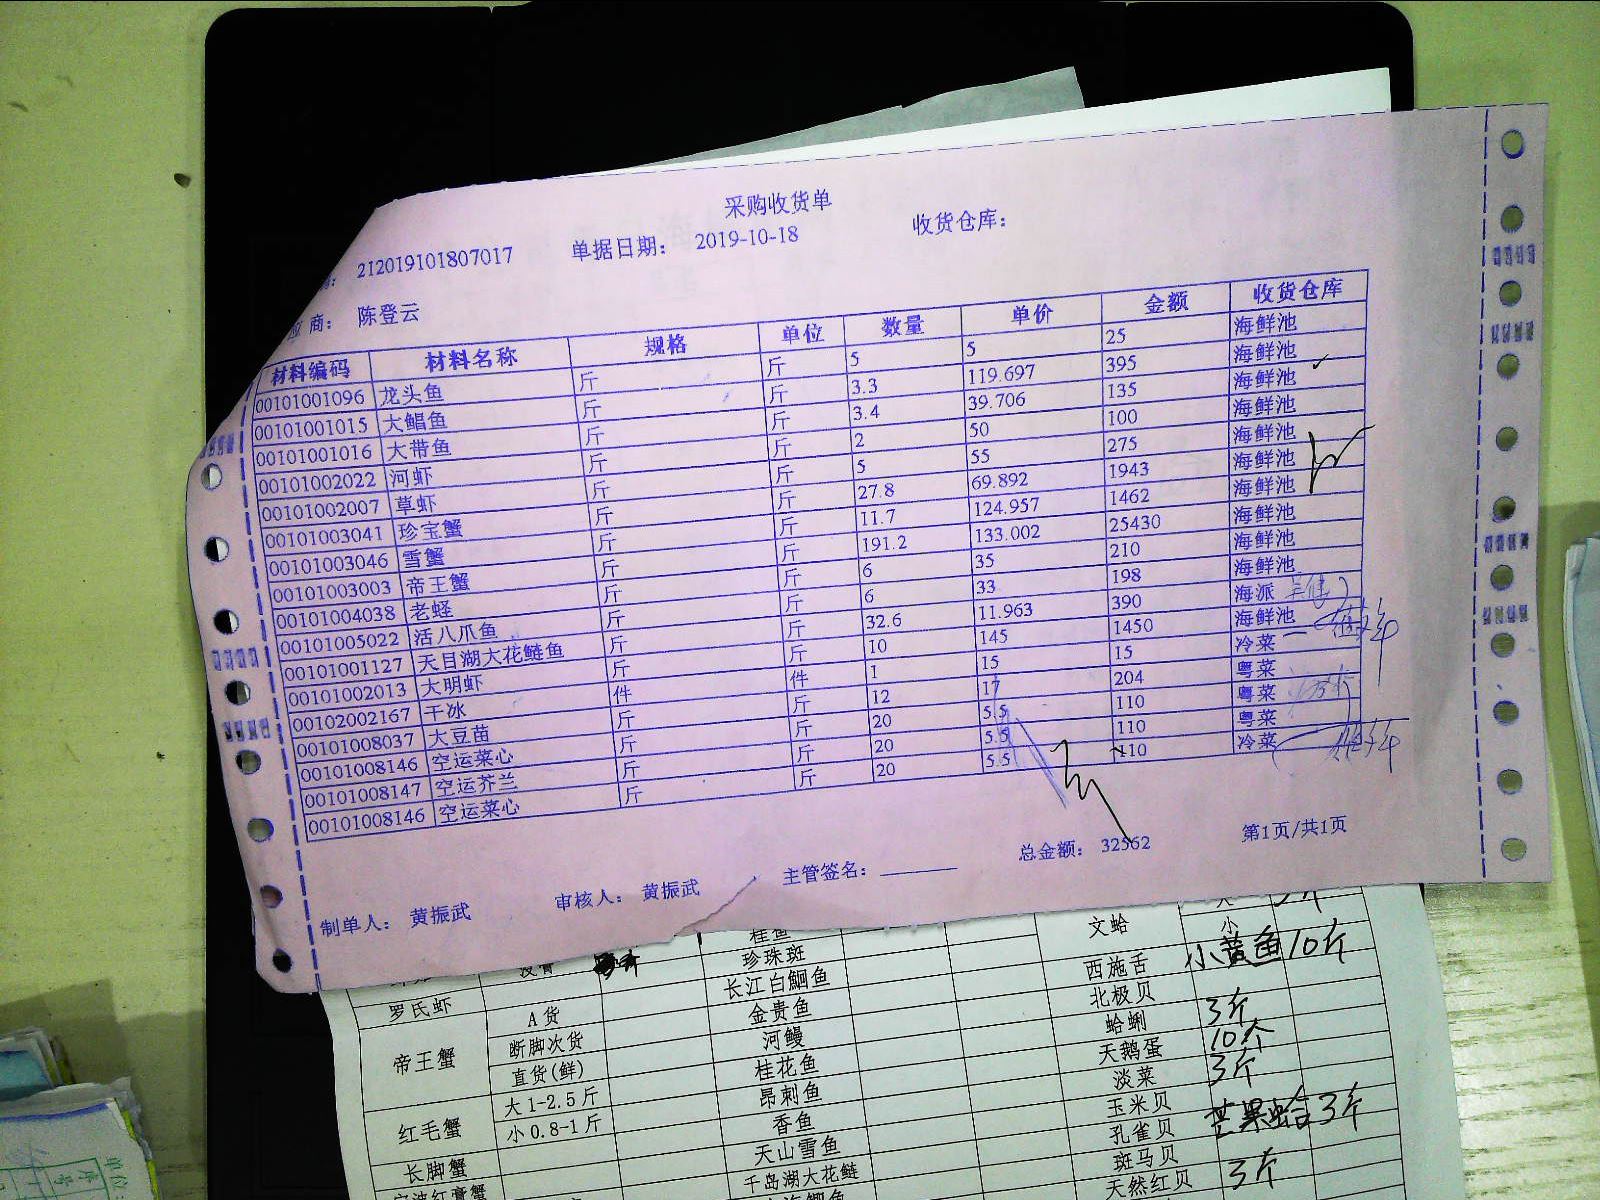 采购收货单
212019101807017 单据日期： 2019-10-18 收货仓库：
应商： 陈登云
材料编码 材料名称 规格 单位 数量 单价 金额 收货仓库
00101001096 龙头鱼 斤 斤 5 5 25 海鲜池
00101001015 大鲳鱼 斤 斤 3.3 119.697 395 海鲜池
00101001016 大带鱼 斤 斤 3.4 39.706 135 海鲜池
00101002022 河虾 斤 斤 2 50 100 海鲜池
00101002007 草虾 斤 斤 5 55 275 海鲜池
00101003041 珍宝蟹 斤 斤 27.8 69.892 1943 海鲜池
00101003046 雪蟹 斤 斤 11.7 124.957 1462 海鲜池
00101003003 帝王蟹 斤 斤 191.2 133.002 25430 海鲜池
00101004038 老蛏 斤 斤 6 35 210 海鲜池
00101005022 活八爪鱼 斤 斤 6 33 198 海鲜池
00101001127 天目湖大花鲢鱼 斤 斤 32.6 11.963 390 海派
00101002013 大明虾 斤 斤 10 145 1450 海鲜池
00102002167 干冰 件 件 1 15 15 冷菜
00101008037 大豆苗 斤 斤 12 17 204 粤菜
00101008146 空运菜心 斤 斤 20 5.5 110 粤菜
00101008147 空运芥兰 斤 斤 20 5.5 110 粤菜
00101008146 空运菜心 斤 斤 20 5.5 110 冷菜
制单人： 黄振武 审核人： 黄振武 主管签名： 总金额： 32562 第1页/共1页
桂鱼 文蛤 小
珍珠斑 西施舌 小黄鱼10斤
罗氏虾 长江白鮰鱼 北极贝
A货 金贵鱼 蛤蜊 3斤
帝王蟹 断脚次货 河鳗 天鹅蛋 10个
直货(鲜) 桂花鱼 淡菜 3斤
大1-2.5斤 昂刺鱼 玉米贝
红毛蟹 小0.8-1斤 香鱼 孔雀贝 芒果蛤3斤
长脚蟹 天山雪鱼 斑马贝
千岛湖大花鲢 天然红贝 3斤